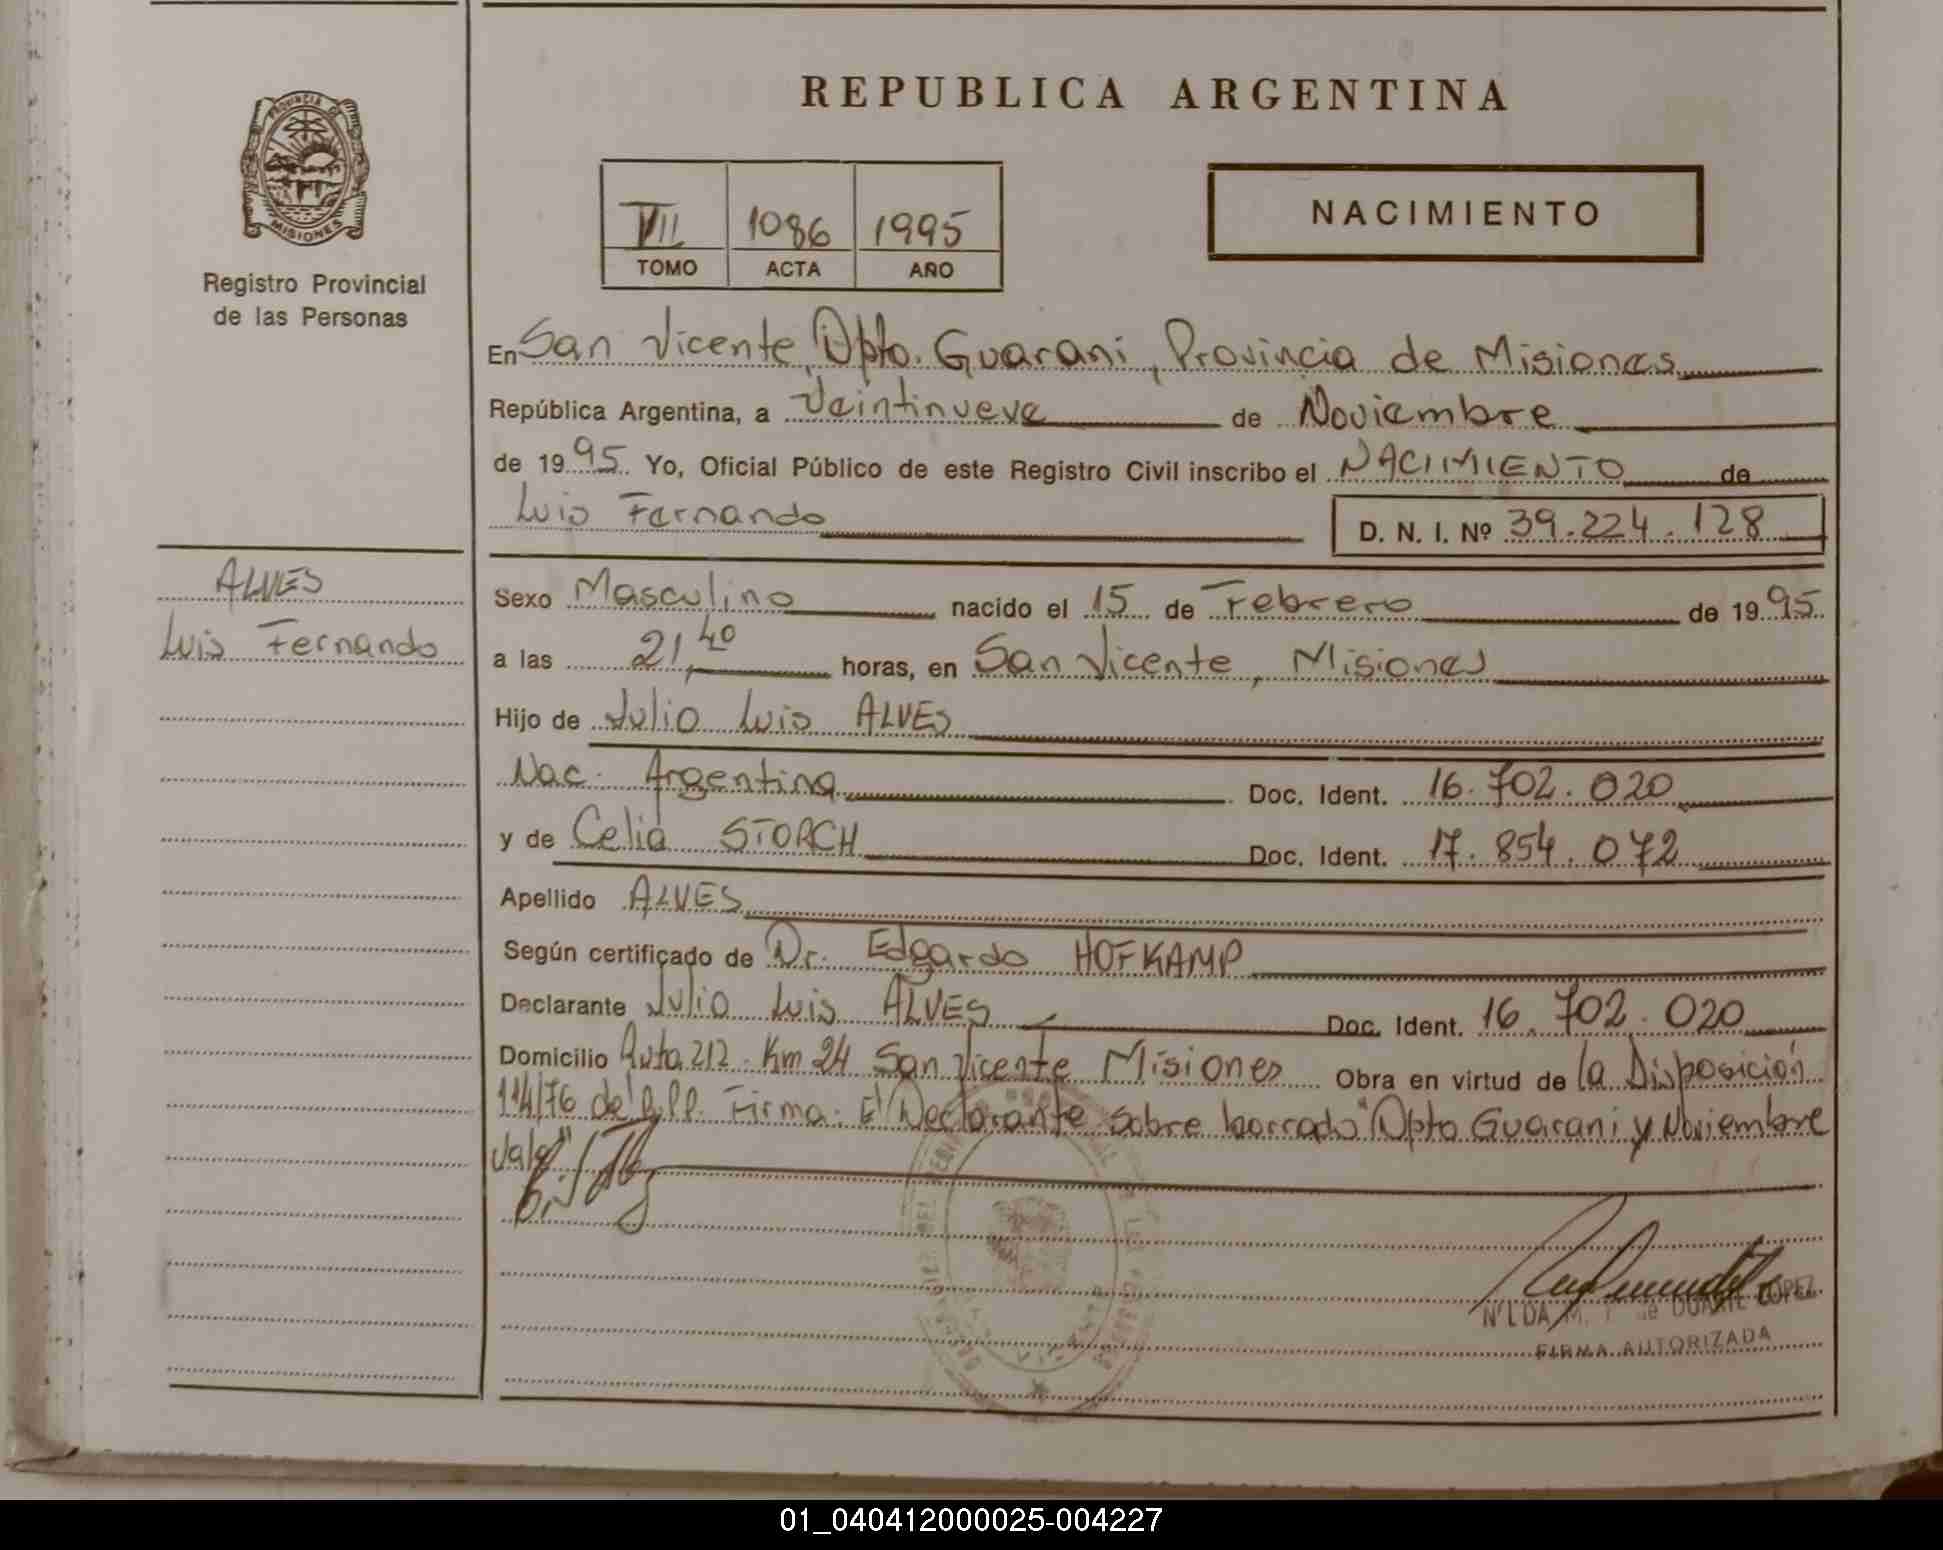 REPUBLICA ARGENTINA
PROVINCIA DE
MISIONES
Registro Provincial
de las Personas
VII 1086 1995
TOMO ACTA AÑO
NACIMIENTO
En San Vicente, Dpto. Guarani, Provincia de Misiones
República Argentina, a Veintinueve de Noviembre
de 1995. Yo, Oficial Público de este Registro Civil inscribo el NACIMIENTO de
Luis Fernando D. N. I. Nº 39.224.128
ALVES
Luis Fernando
Sexo Masculino nacido el 15 de Febrero de 1995
a las 21,40 horas, en San Vicente, Misiones
Hijo de Julio Luis ALVES
Nac. Argentina Doc. Ident. 16.702.020
y de Celia STORCH Doc. Ident. 17.854.072
Apellido ALVES
Según certificado de Dr. Edgardo HOFKAMP
Declarante Julio Luis ALVES Doc. Ident. 16.702.020
Domicilio Ruta 212 - Km 24 San Vicente Misiones Obra en virtud de la Disposición
114/76 del R.P.P. Firma: El Declarante sobre borrado "Dpto Guarani y Noviembre
Vale"
DUARTE LOPEZ
FIRMA AUTORIZADA
01_040412000025-004227